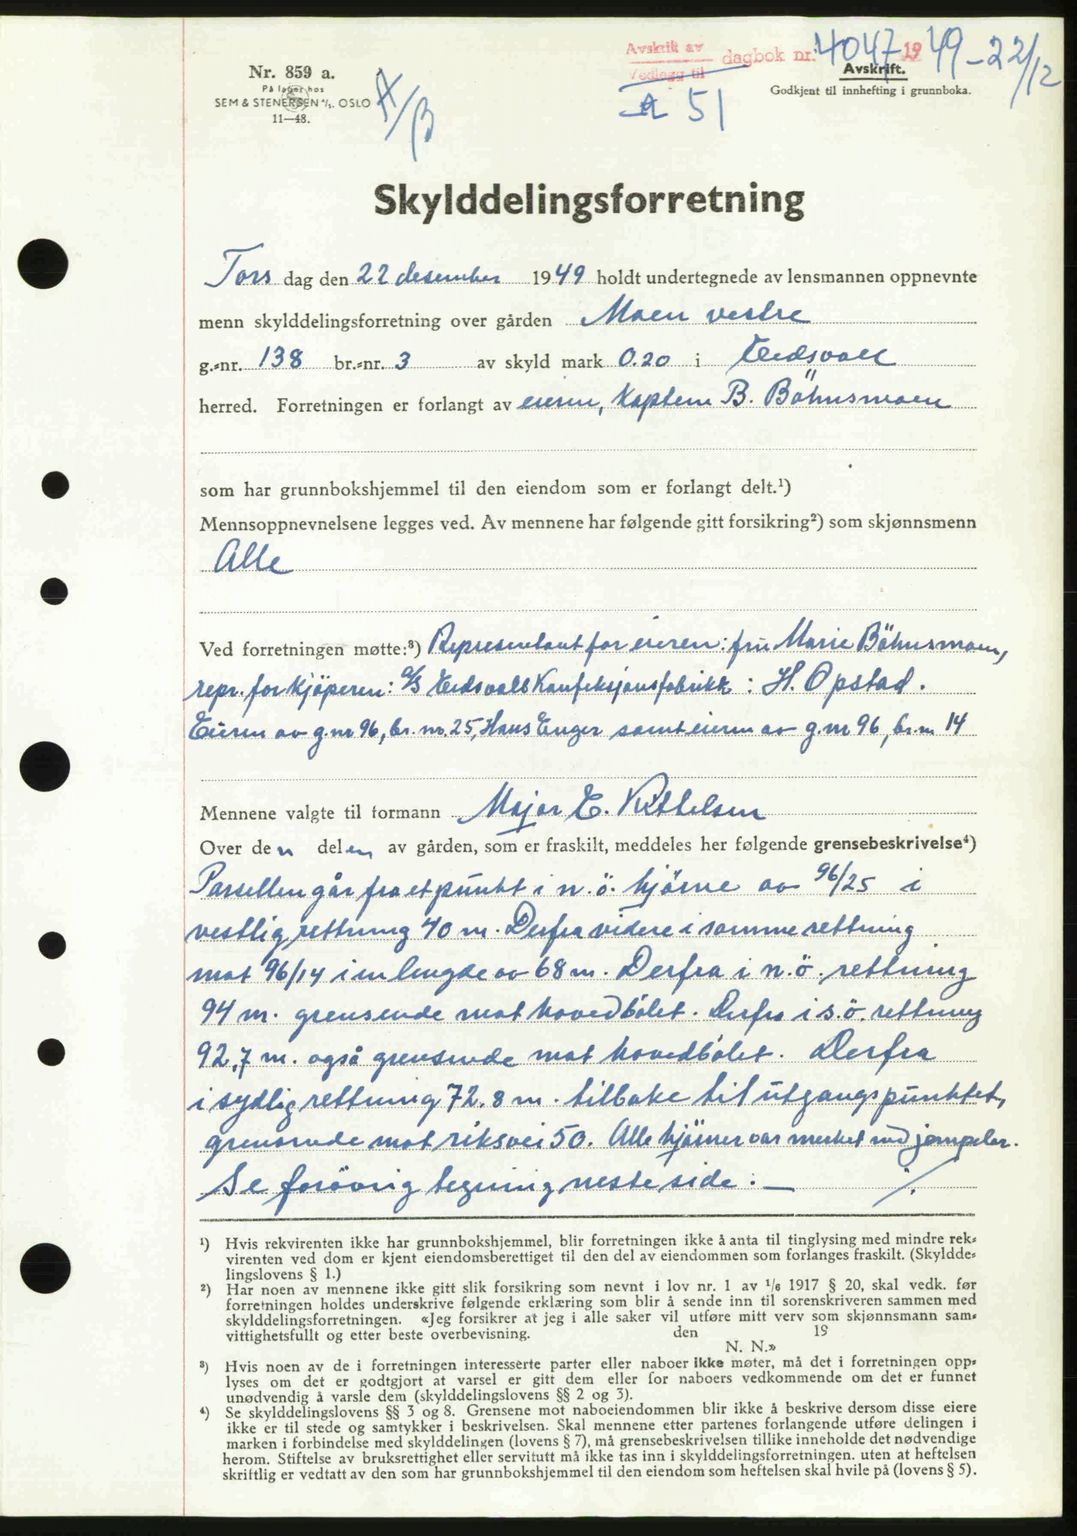 Avskrift av
Vedlegg til
dagbok nr. 4047 1949 - 22/12
Nr. 859 a.
På lager hos
SEM & STENERSEN A/S. OSLO
11—48.
A/B
A 51
Avskrift.
Godkjent til innhefting i grunnboka.
Skylddelingsforretning
Tors dag den 22 desember 1949 holdt undertegnede av lensmannen oppnevnte
menn skylddelingsforretning over gården Moen vestre
g.-nr. 138 br.-nr. 3 av skyld mark 0.20 i Eidsvoll
herred. Forretningen er forlangt av eieren, Kaptein B. Böhnsmoen
som har grunnbokshjemmel til den eiendom som er forlangt delt.¹)
Mennsoppnevnelsene legges ved. Av mennene har følgende gitt forsikring²) som skjønnsmenn
Alle
Ved forretningen møtte:³) Representant for eieren: fru Marie Böhnsmoen,
repr. for kjöperen: A/S Eidsvolls Konfeksjonsfabrikk: H. Opstad.
Eieren av g.nr 96, br. nr. 25, Hans Enger samt eieren av g.nr 96, br.nr 14
Mennene valgte til formann Major E. Kittelsen
Over den delen av gården, som er fraskilt, meddeles her følgende grensebeskrivelse⁴)
Parsellen går fra et punkt i n.ö. hjörne av 96/25 i
vestlig rettning 40 m. Derfra videre i samme rettning
mot 96/14 i en lengde av 68 m. Derfra i n.ö. rettning
94 m. grensende mot hovedbölet. Derfra i s.ö. rettning
92,7 m. også grensende mot hovedbölet. Derfra
i sydlig rettning 72.8 m. tilbake til utgangspunktet,
grensende mot riksvei 50. Alle hjörner var merket med jernpeler.
Se forövrig tegning neste side. — ./.
¹) Hvis rekvirenten ikke har grunnbokshjemmel, blir forretningen ikke å anta til tinglysing med mindre rek-
virenten ved dom er kjent eiendomsberettiget til den del av eiendommen som forlanges fraskilt. (Skyldde-
lingslovens § 1.)
²) Har noen av mennene ikke gitt slik forsikring som nevnt i lov nr. 1 av 1/6 1917 § 20, skal vedk. før
forretningen holdes underskrive følgende erklæring som blir å sende inn til sorenskriveren sammen med
skylddelingsforretningen. «Jeg forsikrer at jeg i alle saker vil utføre mitt verv som skjønnsmann sam-
vittighetsfullt og etter beste overbevisning. den 19
N. N.»
³) Hvis noen av de i forretningen interesserte parter eller naboer ikke møter, må det i forretningen opp-
lyses om det er godtgjort at varsel er gitt dem eller for naboers vedkommende om det er funnet
unødvendig å varsle dem (skylddelingslovens §§ 2 og 3).
⁴) Se skylddelingslovens §§ 3 og 8. Grensene mot naboeiendommen blir ikke å beskrive dersom disse eiere
ikke er til stede og samtykker i beskrivelsen. Skal mennene etter partenes forlangende utføre delingen i
marken i forbindelse med skylddelingen (lovens § 7), må grensebeskrivelsen tillike inneholde det nødvendige
herom. Stiftelse av bruksrettighet eller servitutt må ikke tas inn i skylddelingsforretningen. uten at heftelsen
skriftlig er vedtatt av den som har grunnbokshjemmel til den eiendom som heftelsen skal hvile på (lovens § 5).